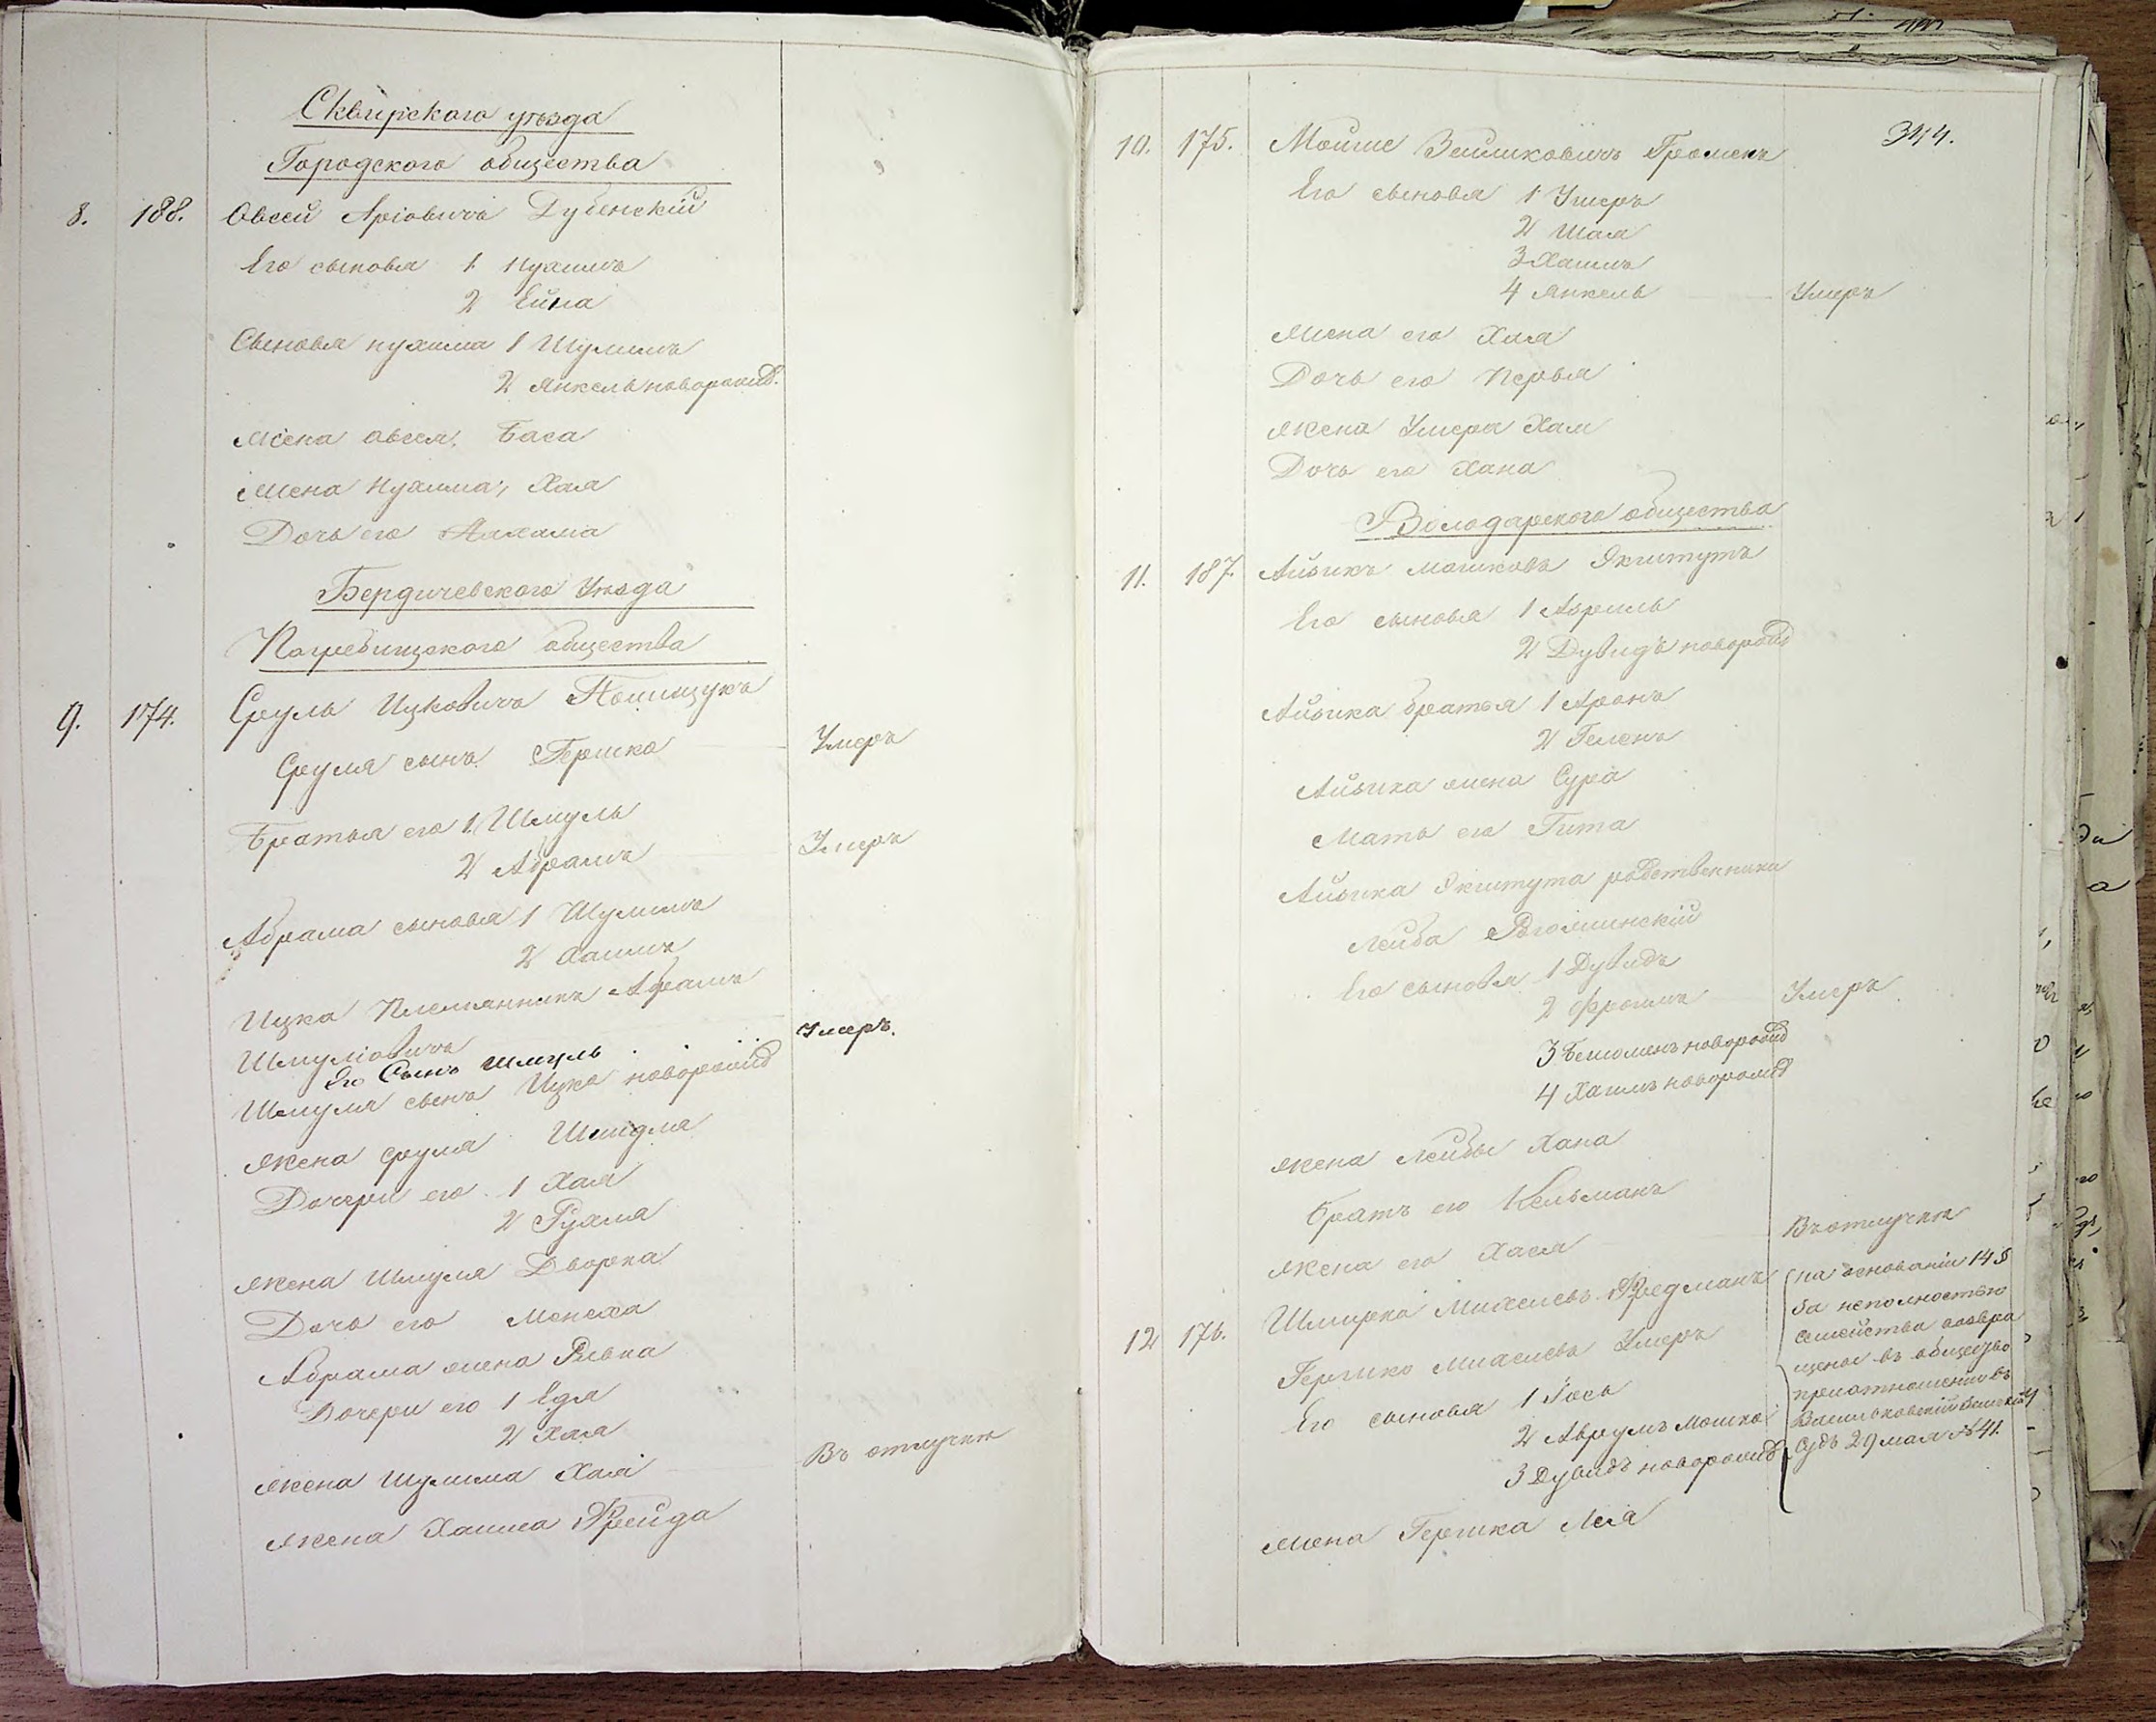 Сквирскаго уѣзда
Городскаго общества
8. 188. Овсей Аріовичъ Дубенскій
Его сыновья 1 Нухимъ
2 Ейна
Сыновья нухима 1 Шулимъ
2 Янкель новорожд.
Жена овсея, Баса
Жена Нухима, Хая
Дочь его
Бердичевскаго Уѣзда
Погребищскаго общества
9. 174. Сруль Ицковичъ Полищукъ
Сруля сынъ Гершко Умеръ
Братья его 1 Шмуль
2 Абрамъ Умеръ
Абрама сыновья 1 Шулимъ
2 Хаимъ
Ицка Племянникъ Абрамъ
Шмуліовичъ
Его Сынъ Шмуль Умеръ.
Шмуля сынъ Ицко новорожд
Жена сруля Шейдля
Дочери его 1 Хая
2 Рухля
Жена Шмуля Дворка
Дочь его Менеха
Абрама жена Ривка
Дочери его 1 Едя
2 Хая
Жена Шулима Хая Въ отлучкѣ
Жена Хаима Фрейда
344.
10. 175. Мойше Зейликовичъ Громенъ
Его сыновья 1 Умеръ
2 Шая
3 Хаимъ
4 Янкель Умеръ
Жена его Хая
Дочь его Перля
Жена Умера Хая
Дочь его Хана
Володарскаго общества
11. 187. Айзикъ Мошковъ Экштутъ
Его сыновья 1 Абрумъ
2 Дувидъ новорожд
Айзика братья 1 Аронъ
2 Геленъ
Айзика жена Сура
Мать его Гита
Айзика Экштута родственники
Лейба
Его сыновья 1 Дувидъ
2 Фроимъ Умеръ
3 новорожд
4 Хаимъ новорожд
Жена Лейбы Хана
Братъ его Кельманъ
Жена его Хася Въ отлучкѣ
12 176. Шмирка Михелевъ Фредманъ
Гершко Михелевъ Умеръ
Его сыновья 1 Іось
2 Аврумъ Мошко
3 Дувидъ новорожд
Жена Гершка Лея
на основаніи 14 §
за неполностью
семейства возвра
щены въ общество
при отношеніи въ
Васильковскій Земскій
Судъ 29 мая № 41.